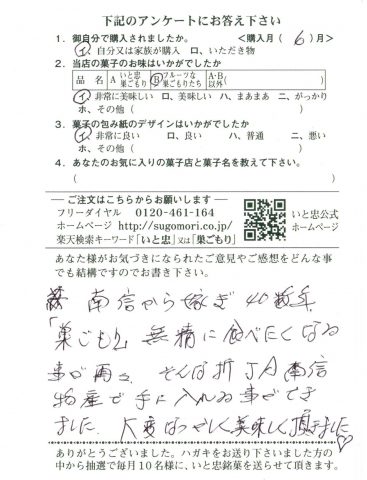 下記のアンケートにお答え下さい
1. 御自分で購入されましたか。 <購入月( 6 )月>
イ、自分又は家族が購入 ロ、いただき物
2. 当店の菓子のお味はいかがでしたか
品 名 A いと忠巣ごもり B フルーツな巣ごもりたち A・B以外( )
イ、非常に美味しい ロ、美味しい ハ、まあまあ ニ、がっかり
ホ、その他( )
3. 菓子の包み紙のデザインはいかがでしたか
イ、非常に良い ロ、良い ハ、普通 ニ、悪い
ホ、その他( )
4. あなたのお気に入りの菓子店と菓子名を教えて下さい。
( )
―ご注文はこちらからお願いします―
フリーダイヤル 0120-461-164
ホームページ http://sugomori.co.jp/
楽天検索キーワード「いと忠」又は「巣ごもり」
いと忠公式
ホームページ
あなた様がお気づきになられたご意見やご感想をどんな事
でも結構ですのでお書き下さい。
南信から嫁ぎ40数年
「巣ごもり」無精に食べたくなる
事が再々、そんな折JA南信
物産で手に入れる事ができ
ました。大変なつかしく美味しく頂きました♡
ありがとうございました。ハガキをお送り下さいました方の
中から抽選で毎月10名様に、いと忠銘菓を送らせて頂きます。